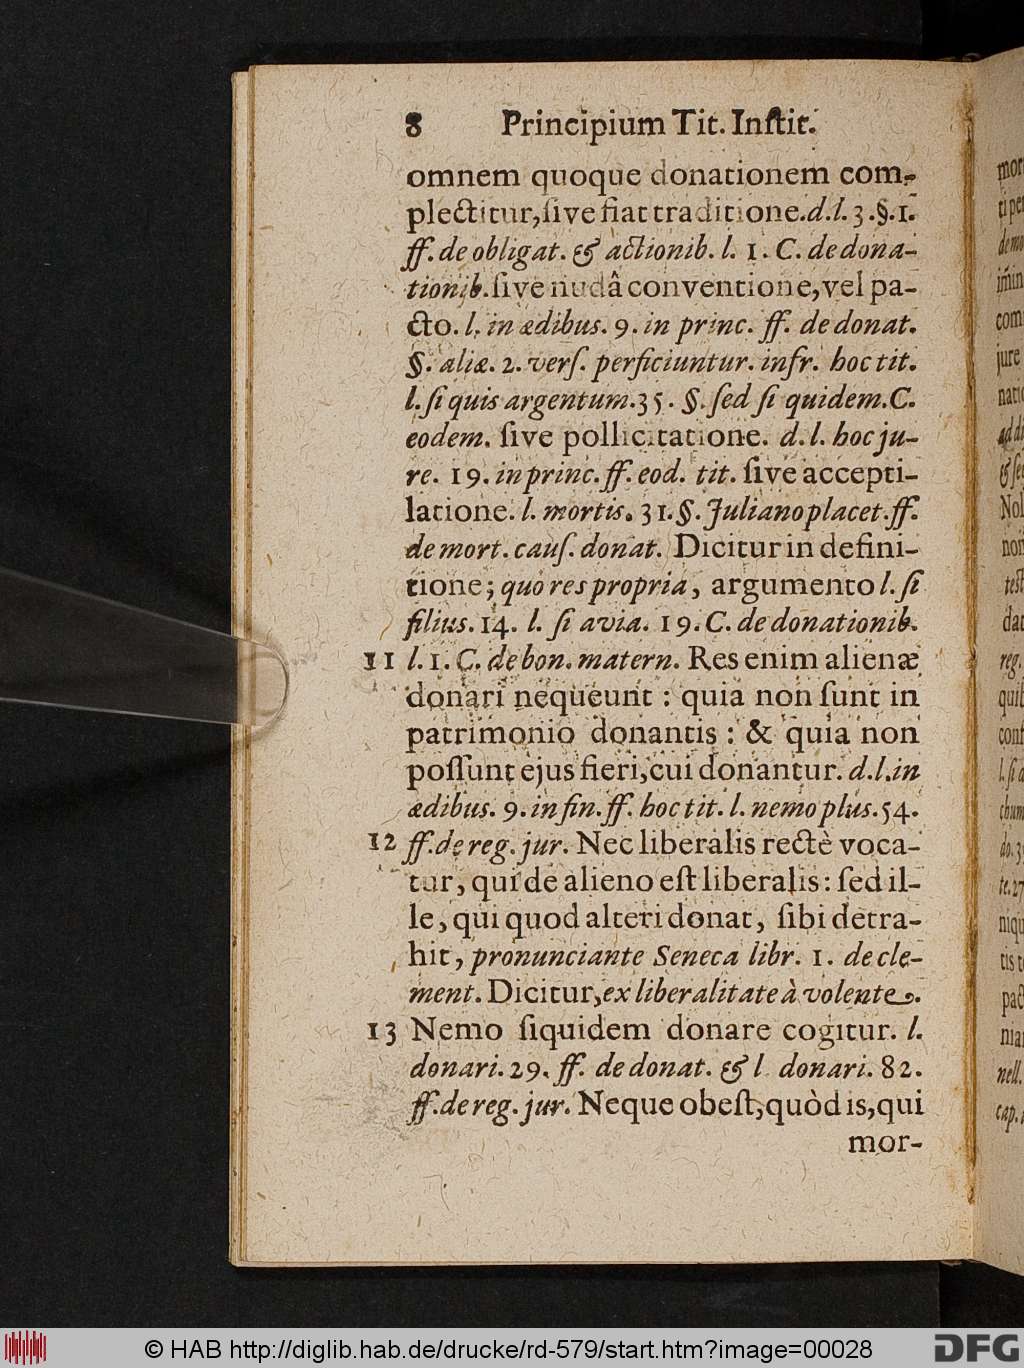 8 Principium Tit. Inſtit.
omnem quoque donationem com-
plectitur, ſive fiat traditione. d.l. 3. §. 1.
ff. de obligat. & actionib. l. 1. C. de dona-
tionib. ſive nudâ conventione, vel pa-
cto. l. in ædibus. 9. in princ. ff. de donat.
§. aliæ. 2. verſ. perficiuntur. infr. hoc tit.
l. ſi quis argentum. 35. §. ſed ſi quidem. C.
eodem. ſive pollicitatione. d. l. hoc ju-
re. 19. in princ. ff. eod. tit. ſive accepti-
latione. l. mortis. 31. §. Juliano placet. ff.
de mort. cauſ. donat. Dicitur in defini-
tione; quo res propria, argumento l. ſi
filius. 14. l. ſi avia. 19. C. de donationib.
11 l. 1. C. de bon. matern. Res enim alienæ
donari nequeunt : quia non ſunt in
patrimonio donantis : & quia non
poſſunt ejus fieri, cui donantur. d. l. in
ædibus. 9. in fin. ff. hoc tit. l. nemo plus. 54.
12 ff. de reg. jur. Nec liberalis rectè voca-
tur, qui de alieno eſt liberalis : ſed il-
le, qui quod alteri donat, ſibi detra-
hit, pronunciante Seneca libr. 1. de cle-
ment. Dicitur, ex liberalitate à volente.
13 Nemo ſiquidem donare cogitur. l.
donari. 29. ff. de donat. & l donari. 82.
ff. de reg. jur. Neque obeſt, quòd is, qui
mor-
© HAB http://diglib.hab.de/drucke/rd-579/start.htm?image=00028
DFG